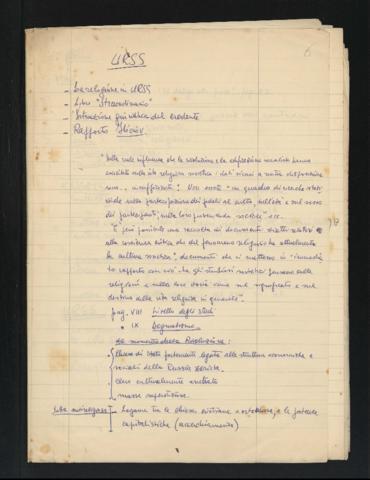 6
URSS
- La religione in URSS
- Libro "Straordinario"
- Istruzione giuridica del credente
- Rapporto
"Sulla reale influenza che la rivoluzione e la edificazione socialista hanno
esercitato sulla vita religiosa sovietica i dati vicini a nostra disposizione
sono insufficienti. Non esiste "un quadro di ricerche stati-
stiche sulla partecipazione dei fedeli al culto, sull'età e sul sesso
dei partecipanti, sulla loro provenienza sociale" ecc.
È però possibile una raccolta di documenti diretti relativi
alla coscienza critica che del fenomeno religioso ha attualmente
la cultura sovietica", documenti che ci mettono in "immedia
to rapporto con ciò che gli studiosi sovietici pensano sulla
religione e sulla sua storia come sul significato e sul
destino della vita religiosa in generale".
pag. VIII Livello degli studi
" IX Dogmatismo
Al momento della Rivoluzione:
Chiesa di Stato fortemente legata alle strutture economiche e
sociali della Russia zarista.
clero culturalmente arretrato
masse superstiziose.
- Legame tra le chiese cristiane e ortodosse, e le potenze
capitalistiche (accerchiamento)